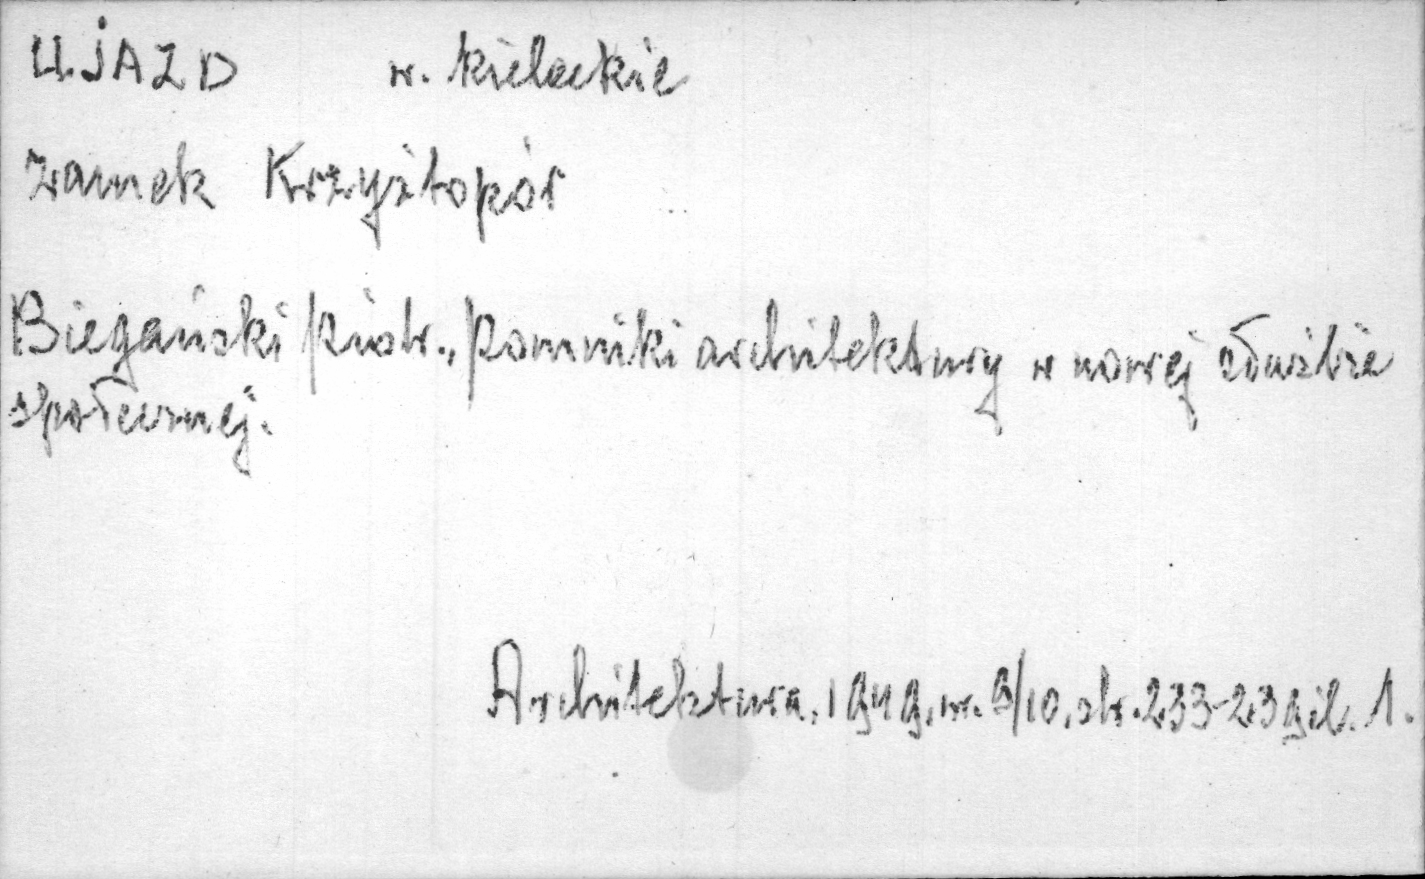 UJAZD w. kieleckie
zamek Krzyżtopór
Biegański Piotr., Pomniki architektury w nowej służbie
społecznej.
Architektura, 1949, nr. 9/10, str. 233-239 il. 1.